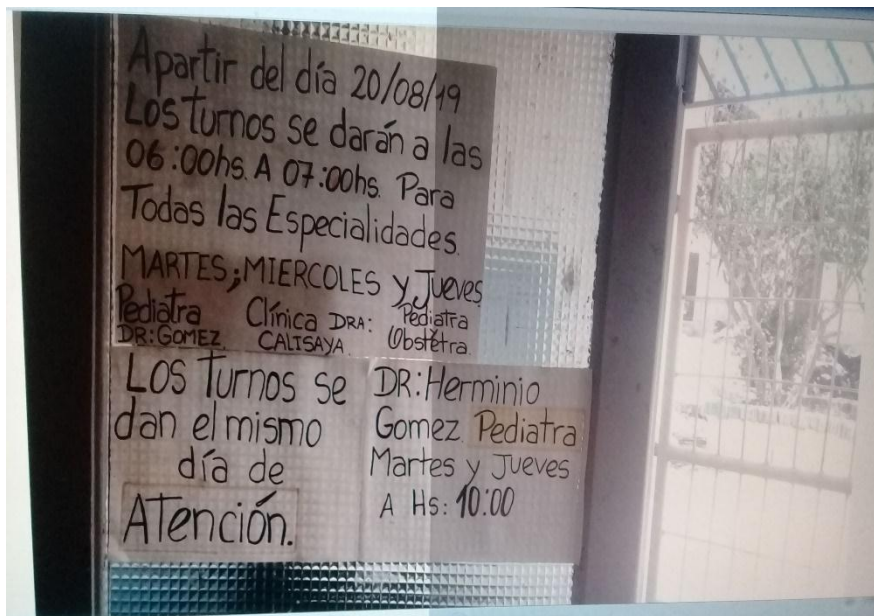 Apartir del día 20/08/19
Los turnos se darán a las
06:00hs. A 07:00hs. Para
Todas las Especialidades.
MARTES; MIERCOLES y Jueves
Pediatra Clínica DRA: Pediatra
DR: GOMEZ CALISAYA Obstétra
Los Turnos se
dan el mismo
día de
ATención.
DR: Herminio
Gomez Pediatra
Martes y Jueves
A Hs: 10:00